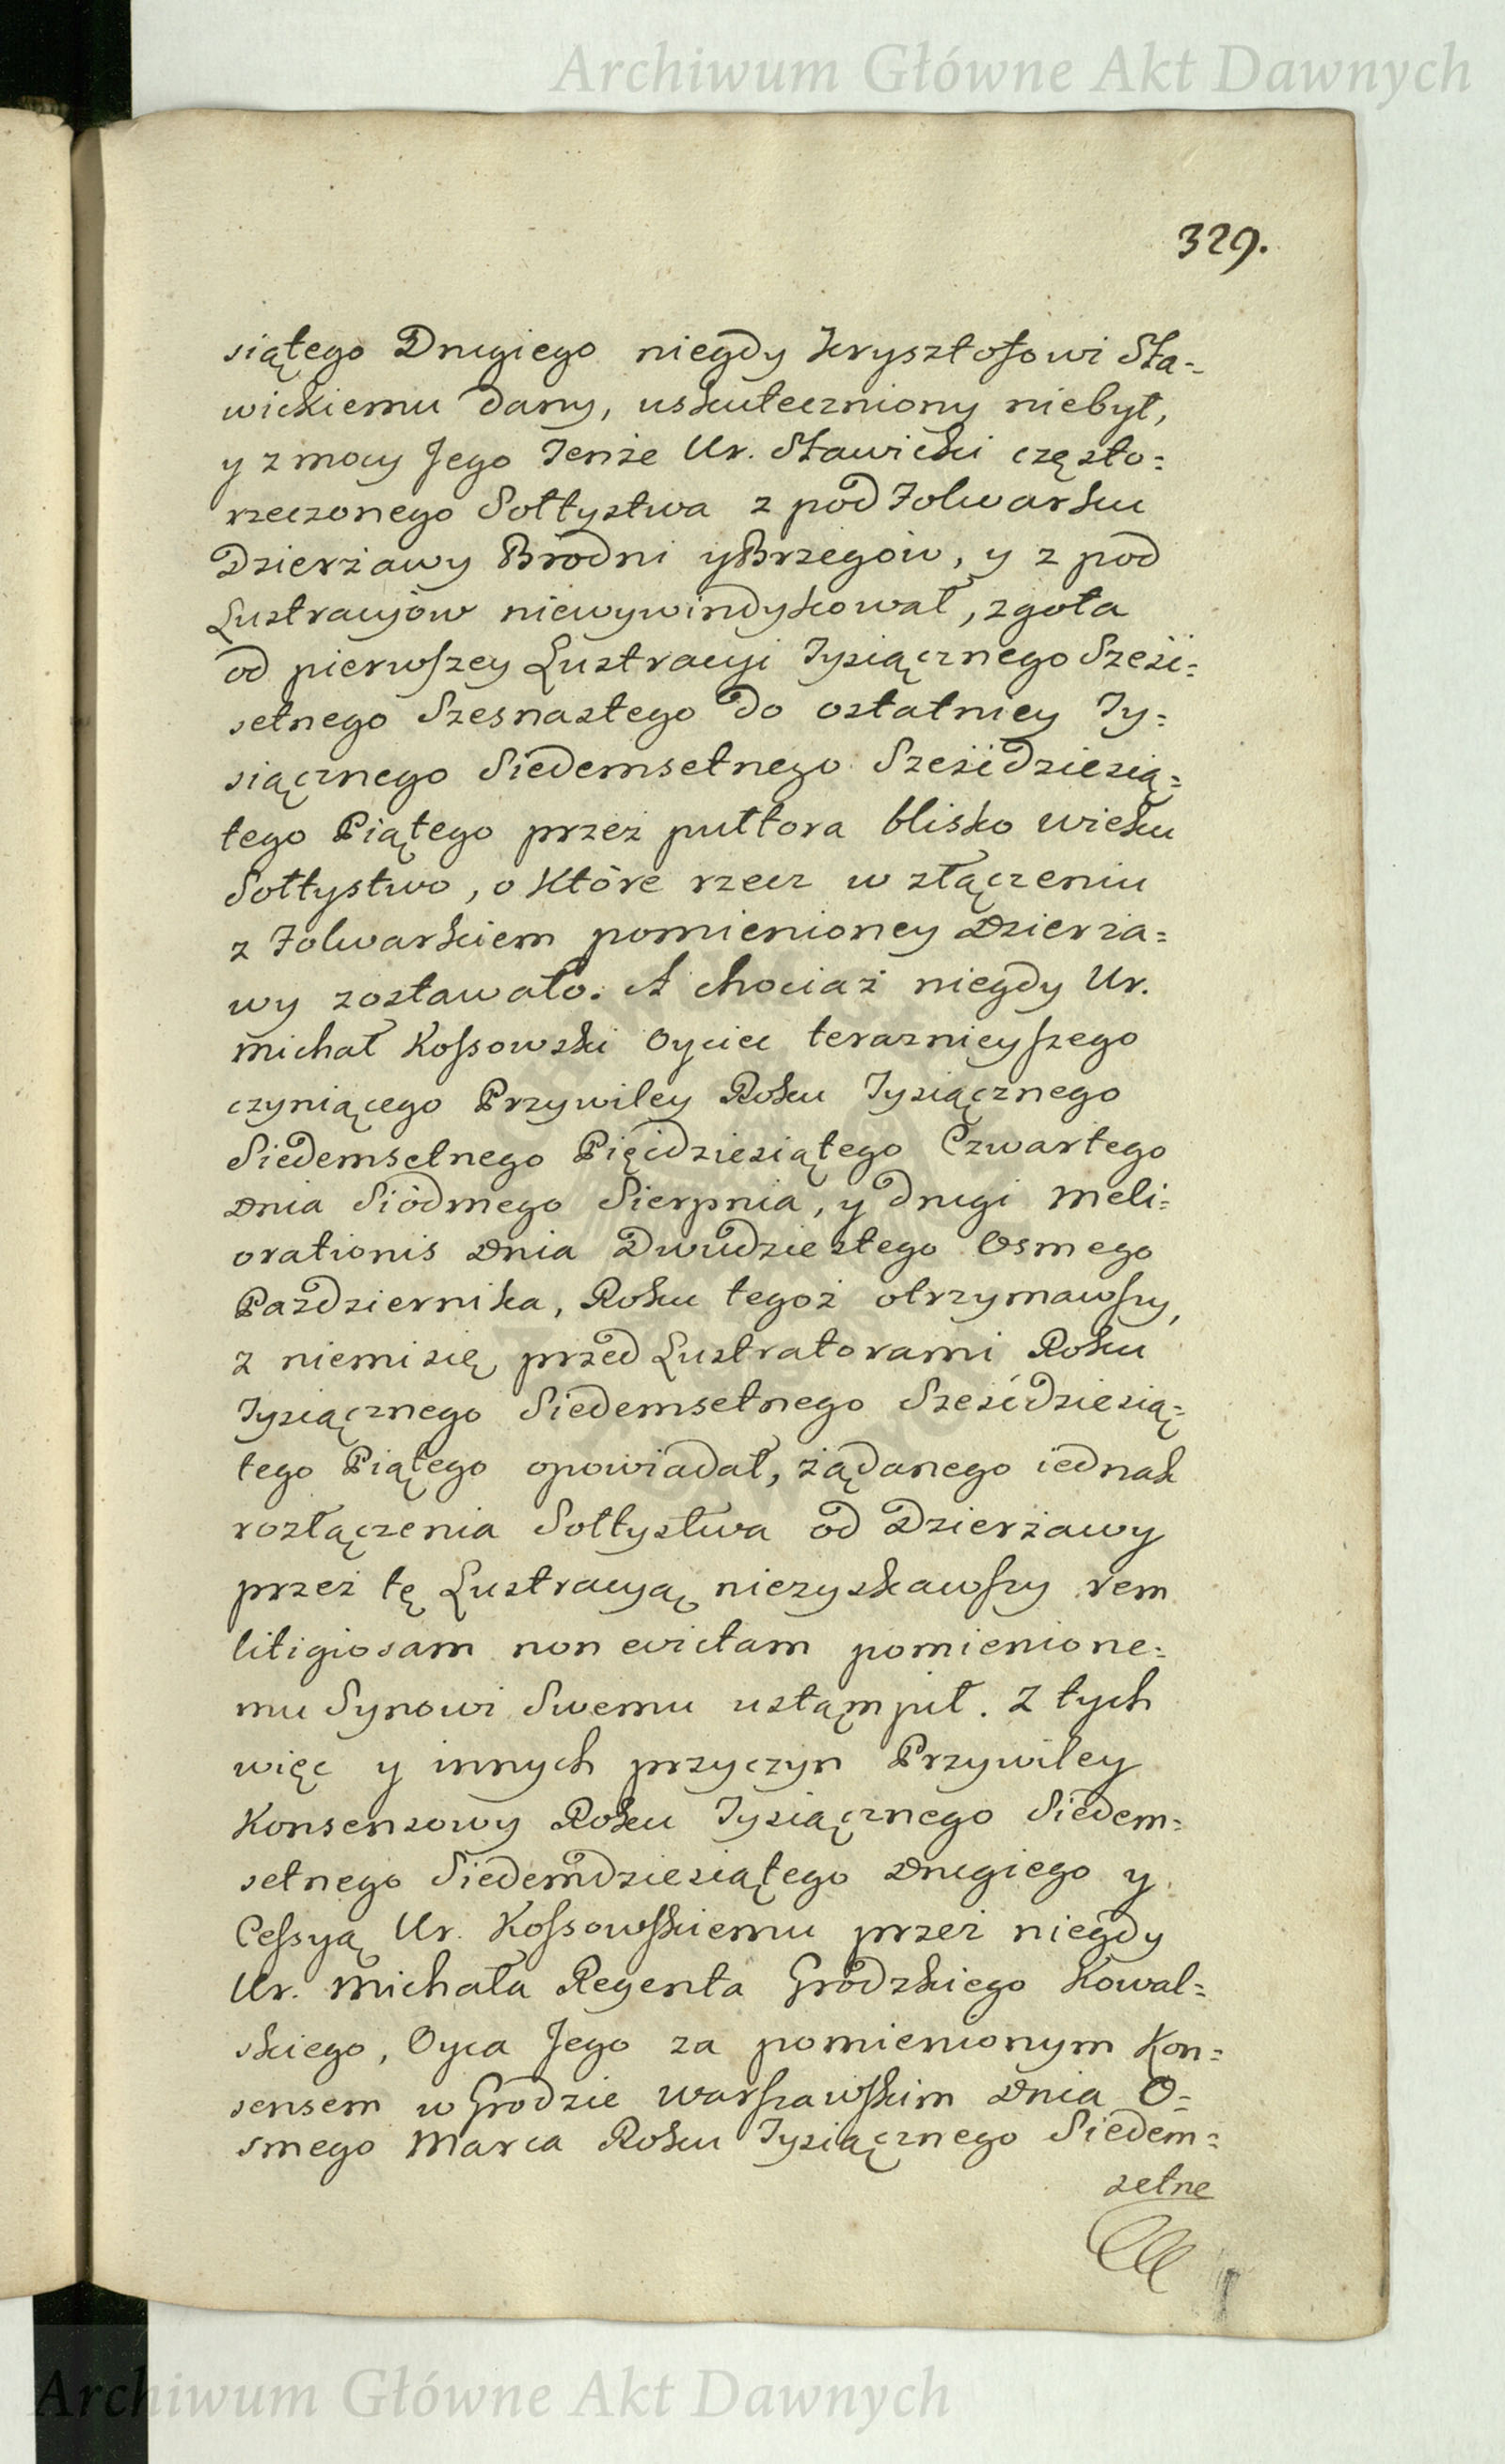 Archiwum Główne Akt Dawnych
329.
siątego Drugiego niegdy Krysztofowi Sta-
wickiemu dany, uskuteczniony niebył,
y z mocy Jego Tenże Ur. Stawicki często=
rzeczonego Sołtystwa z pod Folwarku
Dzierżawy Brodni y Brzegów, y z pod
Lustracyów niewywindykował, zgoła
od pierwszey Lustracyi Tysiącznego Sześć=
setnego Szesnastego do ostatniey Ty=
siącznego Siedemsetnego Sześćdziesią=
tego Piątego przez pułtora blisko wieku
Sołtystwo, o które rzecz w złączeniu
z Folwarkiem pomienioney Dzierża=
wy zostawało. A chociaż niegdy Ur.
Michał Kossowski Oyciec teraznieyszego
czyniącego Przywiley Roku Tysiącznego
Siedemsetnego Pięćdziesiątego Czwartego
Dnia Siódmego Sierpnia, y drugi meli=
orationis Dnia Dwudziestego Osmego
Pazdziernika, Roku tegoż otrzymawszy,
z niemi się przed Lustratorami Roku
Tysiącznego Siedemsetnego Sześćdziesią=
tego Piątego opowiadał, żądanego iednak
rozłączenia Sołtystwa od Dzierżawy
przez tę Lustracyą niezyskawszy rem
litigiosam non evictam pomienione=
mu Synowi Swemu ustąmpił. Z tych
więc y innych przyczyn Przywiley
Konsensowy Roku Tysiącznego Siedem=
setnego Siedemdziesiątego Drugiego y
Cessyą Ur. Kossowskiemu przez niegdy
Ur. Michała Regenta Grodzkiego Kowal=
skiego, Oyca Jego za pomienionym Kon=
sensem w Grodzie Warszawskim Dnia O=
smego Marca Roku Tysiącznego Siedem=
setne
Archiwum Główne Akt Dawnych